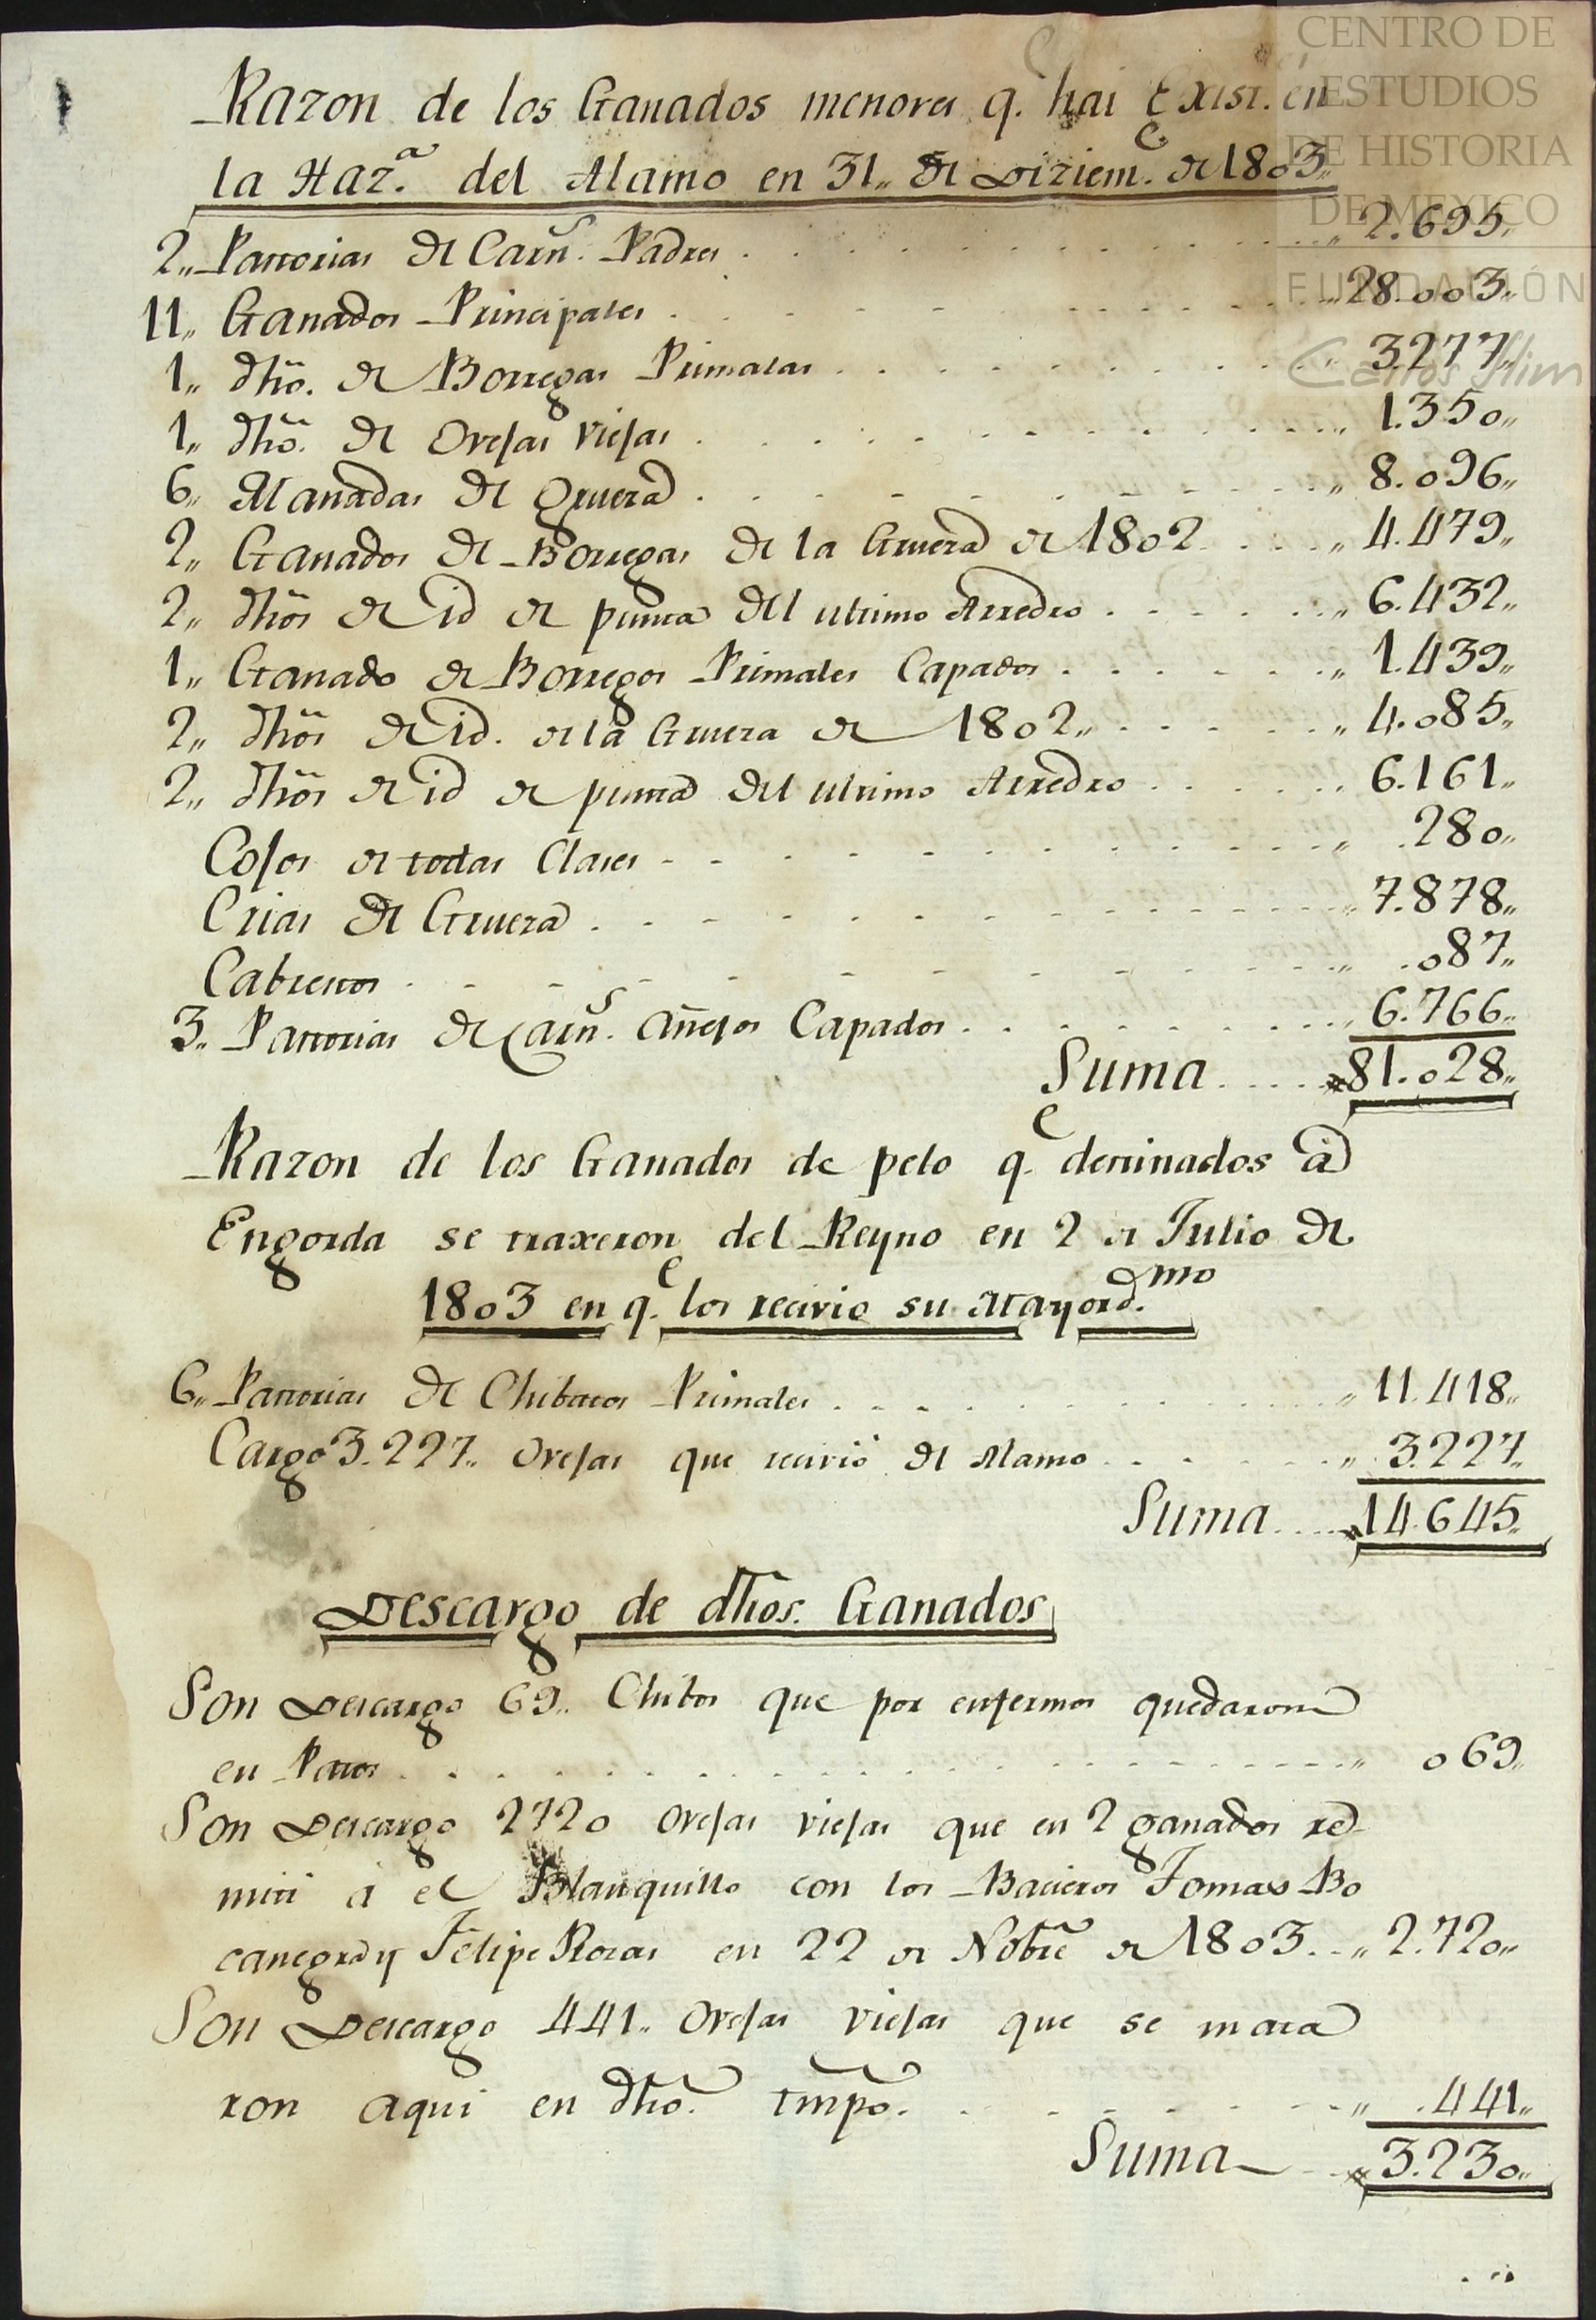 CENTRO DE
ESTUDIOS
DE HISTORIA
DE MEXICO
FUNDACIÓN
Carlos Slim
Razon de los Ganados menores q.e hai Exist. en
la Haz.a del Alamo en 31,, de Diziem.e de 1803,,
2,, Pastorias de Carn.s Padres . . . . . . . . . . ,, 2.695,,
11,, Ganados Principales . . . . . . . . . . ,, 28.003,,
1,, dhõ. de Borregas Primalas . . . . . . . . . . ,, 3.277,,
1,, dhõ. de Ovejas viejas . . . . . . . . . . ,, 1.350,,
6,, Manadas de Gruesa . . . . . . . . . . ,, 8.096,,
2,, Ganados de Borregas de la Gruesa de 1802 . . . . ,, 4.479,,
2,, dhõs de id de punta del ultimo Arredro . . . . . . ,, 6.432,,
1,, Ganado de Borregos Primales Capados . . . . . . ,, 1.439,,
2,, dhõs de id. de la Gruesa de 1802,, . . . . . . ,, 4.085,,
2,, dhõs de id de punta del ultimo Arredro . . . . . . 6.161,,
Cojos de todas Clases . . . . . . . . . . ,, .280,,
Crias de Gruesa . . . . . . . . . . ,, 7.878,,
Cabresttos . . . . . . . . . . ,, .087,,
3,, Pastorias de Carn.s añejos Capados . . . . . . . . ,, 6.766,,
Suma . . . . 81.028,,
Razon de los Ganados de pelo q.e destinados à
Engorda se traxeron del Reyno en 2 de Julio de
1803 en q.e los recivio su Mayord.mo
6,, Pastorias de Chibatos Primales . . . . . . . . . . ,, 11.418,,
Cargo 3.227,, Ovejas que recivió del Alamo . . . . . . ,, 3.227,,
Suma . . . . 14.645,,
Descargo de dhõs. Ganados
Son Descargo 69,, Chibos que por enfermos quedaron
en Patos . . . . . . . . . . ,, 069,,
Son Descargo 2720 ovejas viejas que en 2 ganados re
miti á el Blanquillo con los Bacieros Tomas Bo
canegra y Felipe Rosas en 22 de Nobrẽ de 1803 . . ,, 2.720,,
Son Descargo 441,, Ovejas viejas que se mata
ron aqui en dhõ. tmpõ. . . . . . . . ,, .441,,
Suma . . 3.230,,